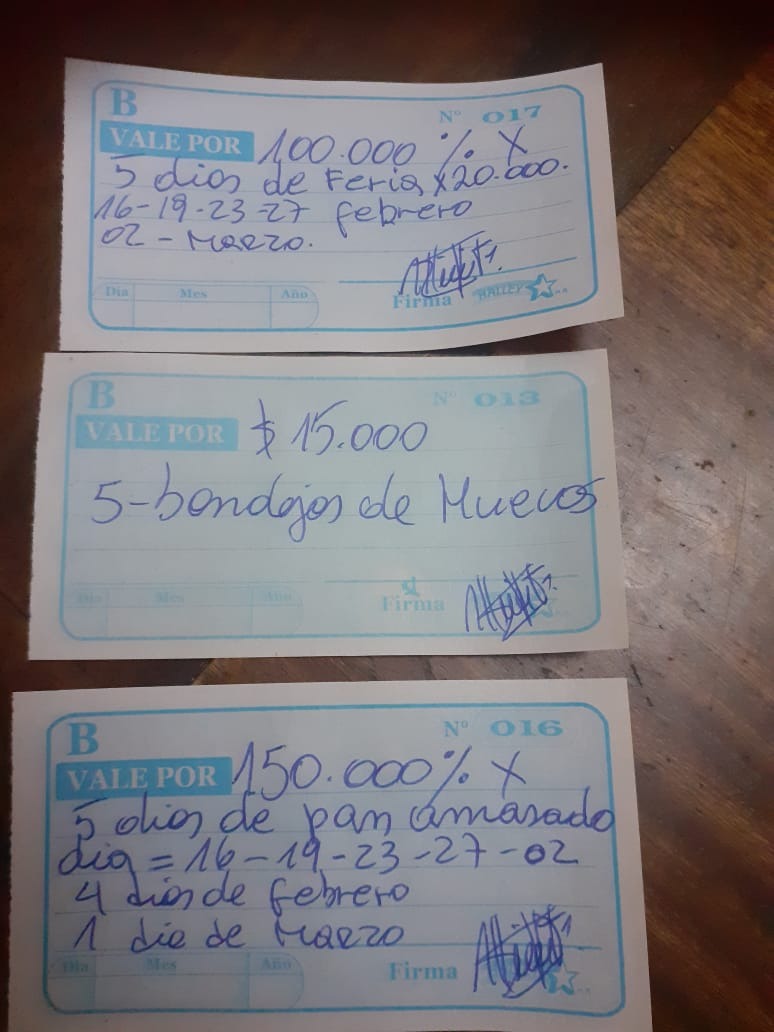 B
Nº 017
VALE POR 100.000 % X
5 dias de Feria x 20.000.
16-19-23-27 febrero
02 - Marzo.
Dia Mes Año
Firma HALLEY
B
Nº 013
VALE POR $ 15.000
5-bandejas de Huevos
Dia Mes Año
Firma
B
Nº 016
VALE POR 150.000 % X
5 dias de pan amasado
dia = 16-19-23-27-02
4 dias de febrero
1 dia de Marzo
Dia Mes Año
Firma